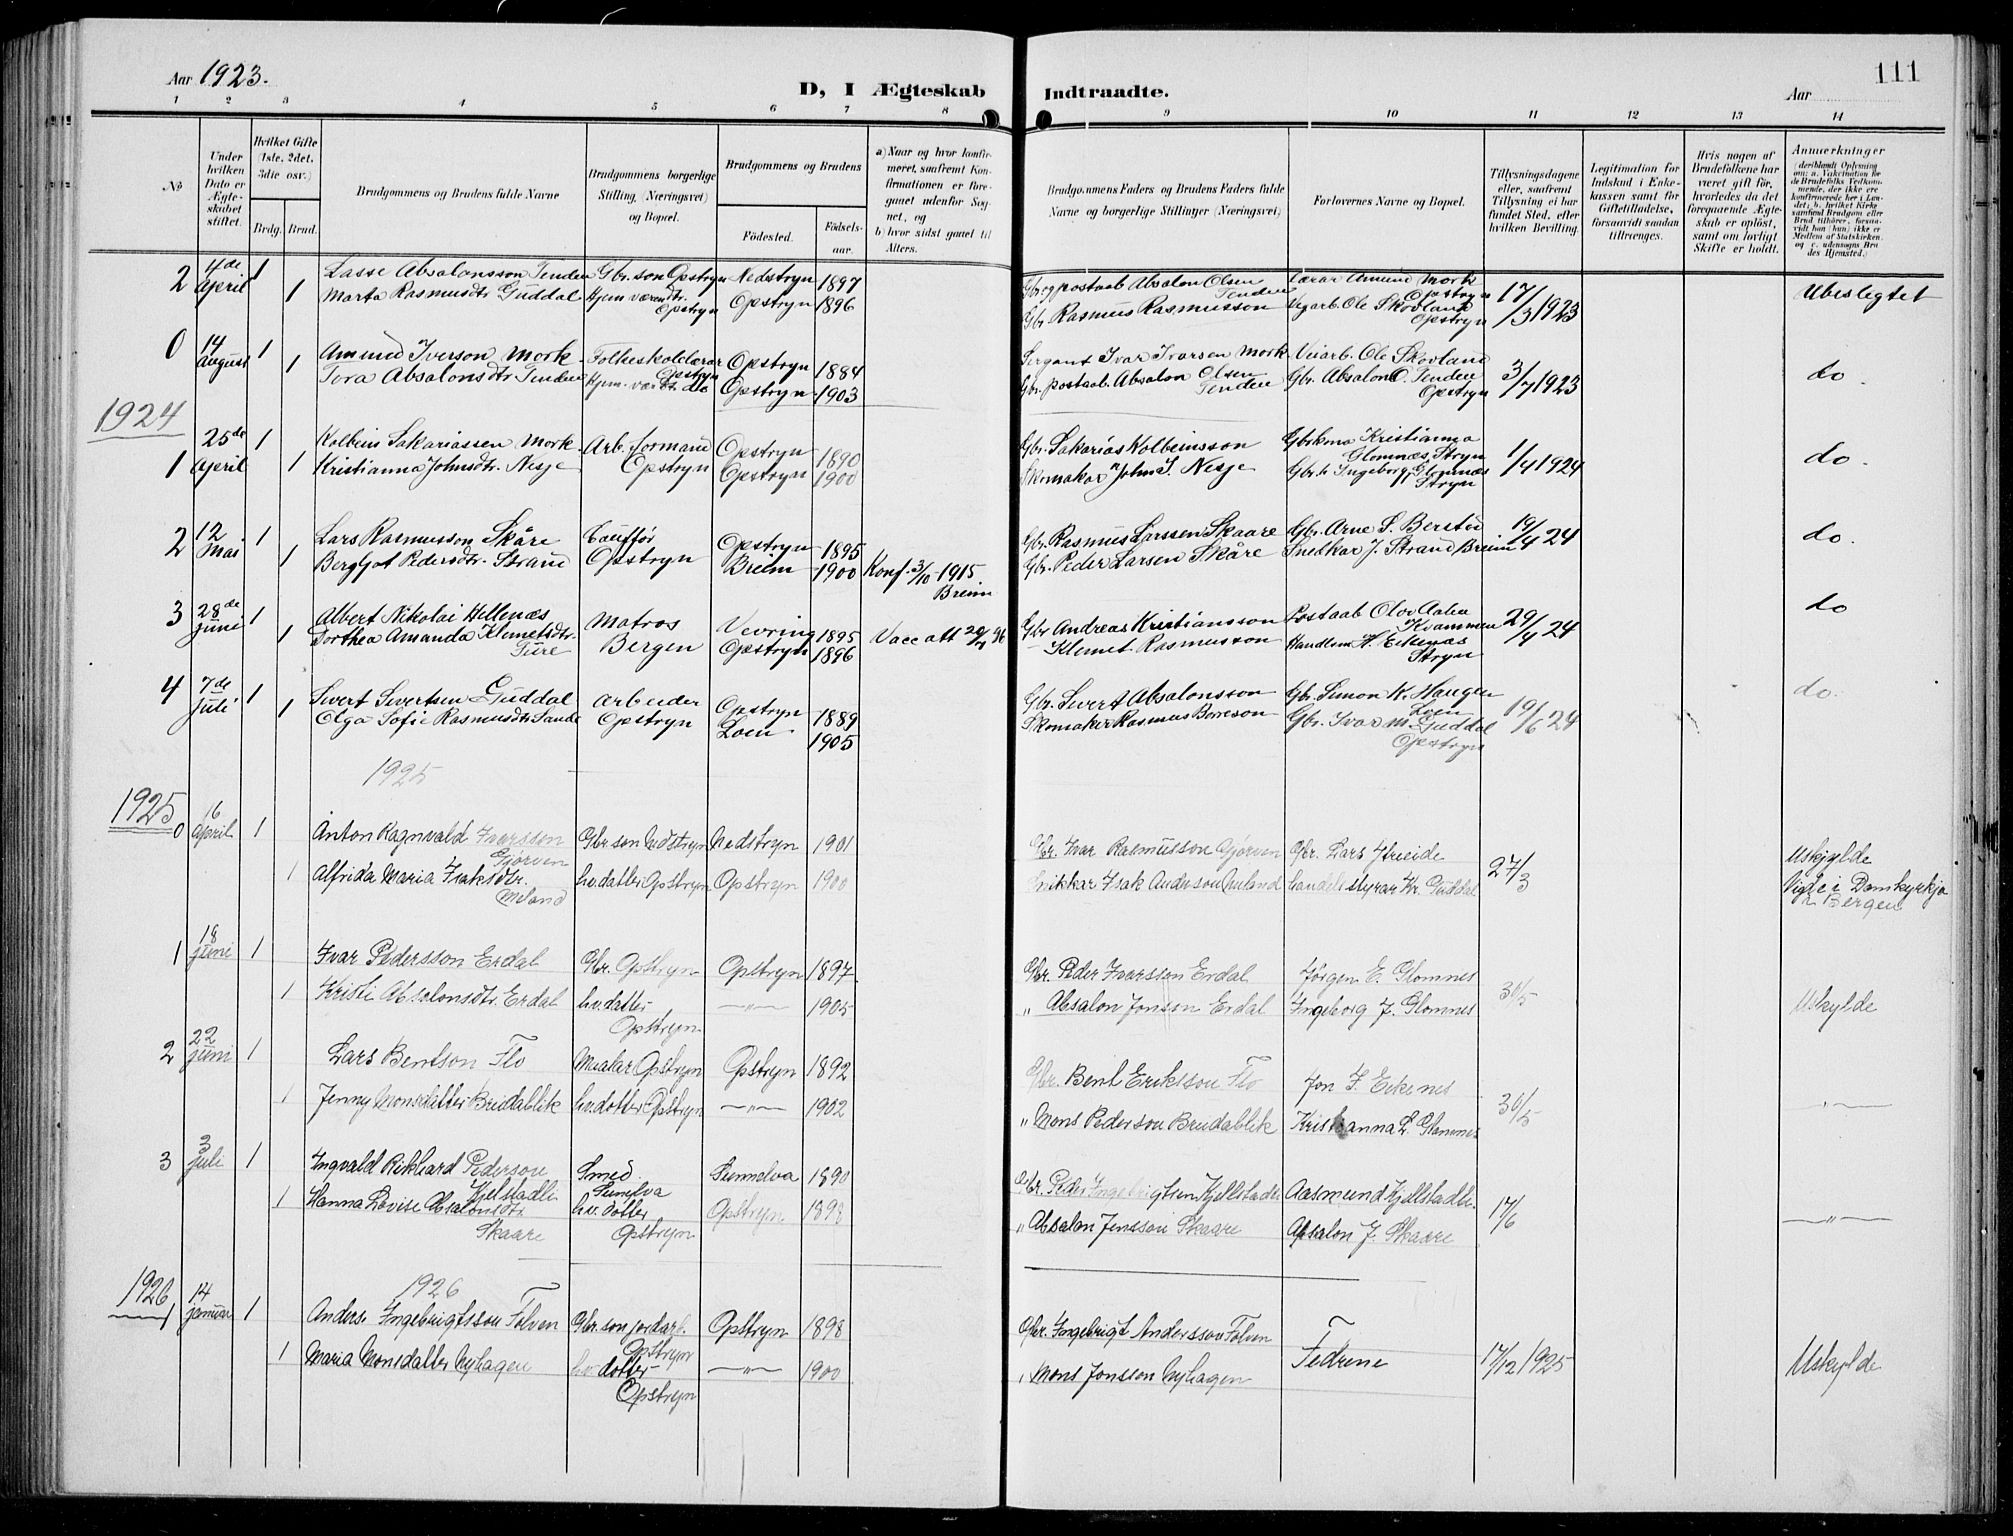 Aar 1923.
D, I Ægteskab
Indtraadte.
111
Aar
1 2 3 4 5 6 7 8 9 10 11 12 13 14
No
Under hvilken Dato er Ægteskabet stiftet.
Hvilket Gifte (1ste, 2det, 3die osv.)
Brdg. Brud.
Brudgommens og Brudens fulde Navne
Brudgommens borgerlige Stilling, (Næringsvei) og Bopæl.
Brudgommens og Brudens
Fødested.
Fødselsaar.
a) Naar og hvor konfirmeret, saafremt Konfirmationen er foregaaet udenfor Sognet, og
b) hvor sidst gaaet til Alters.
Brudgommens Faders og Brudens Faders fulde Navne og borgerlige Stillinger (Næringsvei)
Forlovernes Navne og Bopæl.
Tillysningsdagene eller, saafremt Tillysning ei har fundet Sted, efter hvilken Bevilling.
Legitimation for Indskud i Enkekassen samt for Giftetilladelse, forsaavidt saadan tiltrænges.
Hvis nogen af Brudefolkene har været gift før, hvorledes da det foregaaende Ægteskab er opløst, samt om lovligt Skifte er holdt.
Anmerkninger
(deriblandt Oplysning om: a. Vaccination for de Brudefolks Vedkommende, der ikke ere konfirmerede her i Landet; b. hvilket Kirkesamfund Brudgom eller Brud tilhører, forsaavidt han (hun) ikke er Medlem af Statskirken, og c. udensogns Brudes Hjemsted.)
2 4de April 1 Lasse Absalonsson Tenden Gbr.son Opstryn Nedstryn 1897 Gbr og postaab Absalon Olsen Tenden Lærar Amund Mork Opstryn 17/3 1923 Ubeslegtet
1 Marta Rasmusdtr Guddal Hjem. værendtr. Opstryn Opstryn 1896 Gbr. Rasmus Rasmusson Vegarb. Ole Skovland Opstryn
0 14 August 1 Amund Iverson Mork Folkeskolelærer Opstryn Opstryn 1884 Sergant Ivar Ivarsen Mork Veiarb. Ole Skovland 3/7 1923 do.
1 Tora Absalonsdtr Tenden Hjem. værdtr. do Opstryn 1903 Gbr. postaab. Absalon Olsen Tenden Gbr. Absalon O. Tenden Opstryn
1924
1 25de April 1 Kolbein Sakariassen Mork Arb. formand Opstryn Opstryn 1890 Gbr. Sakarias Kolbeinsson Gbrkma Kristianna Glomnæs, Stryn 1/4 1924 do.
1 Kristianna Johnsdtr. Nesje Opstryn 1900 Skomakar John I. Nesje Gbr.k Ingeborg Glomnæs Stryn
2 12 Mai 1 Lars Rasmusson Skåre Caufför Opstryn Opstryn 1895 Gbr. Rasmus Larssen Skaare Gbr. Arne S. Berstad 19/4 24 do.
1 Bergljot Pedersdtr. Strand Breim 1900 Konf. 3/10-1915 Breim Gbr. Peder Larsen Skåre Snedkar J. Strand Breim
3 28de Juni 1 Albert Nikolai Hellenæs Matros Bergen Vevring 1895 Vacc att Gbr Andreas Kristiansson Postaab Olav Aabu Kvammen 29/4 24 do
1 Dorthea Amanda Klemetsdtr. Ture Opstryn 1896 Klemet Rasmusson Handlsm H. Eikenæs Stryn
4 7de Juli 1 Sivert Sivertsen Guddal Arbeider Opstryn Opstryn 1889 Gbr. Sivert Absalonsson Gbr. Simon K. Haugen Loen 19/6 24 do.
1 Olga Sofie Rasmusdtr Sande Loen 1905 Skomaker Rasmus Borreson Gbr. Ivar M. Guddal Opstryn
1925
1925
0 16 April 1 Anton Ragnvald Ivarsson Gjørven Gbr son Nedstryn Nedstryn 1901 Gbr. Ivar Rasmusson Gjørven Gbr. Lars Ytreeide 27/3 Uskylde
1 Alfrida Maria Isaksdtr. Meland hv. datter Opstryn Opstryn 1900 Snikkar Isak Anderson Meland handelsstyrar Kr. Guddal Vigde i Domkyrkja i Bergen
1 18 Juni 1 Ivar Pedersson Erdal Gbr. Opstryn Opstryn 1897. Gbr. Peder Ivarsson Erdal Jørgen E. Glomnes 30/5 Uskylde
1 Kristi Absalonsdtr. Erdal hv. datter Opstryn —"— 1905 " Absalon Jonson Erdal Ingeborg J. Glomnes
2 22 Juni 1 Lars Bentson Flo Maakar Opstryn Opstryn 1892 Gbr. Bent Eriksson Flo Jon I. Eikenes 30/5 —"—
1 Jenny Monsdatter Brudablik hv. dotter Opstryn —"— 1902 " Mons Pederson Brudablik Kristianna L. Glomnes
3 3 Juli 1 Ingvald Rikhard Pederson Kjelstadli Smed Sunelva Sunnelva 1890 Gbr. Peder Ingebrigtsen Kjellstadli Aasmund Kjellstadli. 17/6 —"—
1 Hanna Lovise Absalonsdtr Skaare hv. dotter Opstryn Opstryn 1898 " Absalon Jensson Skaare Absalon J. Skaare
1926
1926
1 14 Januar 1 Anders Ingebrigtsson Folven Gbr. son jordarb. Opstryn Opstryn 1898 Gbr. Ingebrigt Andersson Folven Fedrene 17/12 1925 Uskylde
1 Maria Monsdatter Nyhagen hv. dotter Opstryn —"— 1900 " Mons Jonsson Nyhagen